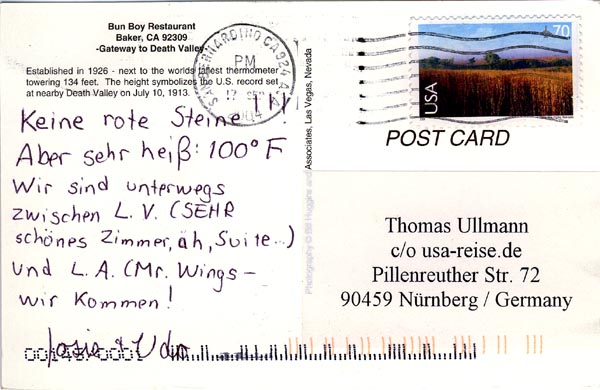 Bun Boy Restaurant
Baker, CA 92309
-Gateway to Death Valley-
Established in 1926 - next to the worlds tallest thermometer
towering 134 feet. The height symbolizes the U.S. record set
at nearby Death Valley on July 10, 1913.
Keine rote Steine !!!
Aber sehr heiß: 100° F
Wir sind unterwegs
zwischen L.V. (SEHR
schönes Zimmer, äh, Suite...)
und L.A. (Mr. Wings -
wir kommen!
+ Udo
SAN BERNARDINO CA 924
PM
17 SEP
2004
Photography © Bill Huggins and Associates, Las Vegas, Nevada
70
USA
POST CARD
Thomas Ullmann
c/o usa-reise.de
Pillenreuther Str. 72
90459 Nürnberg / Germany